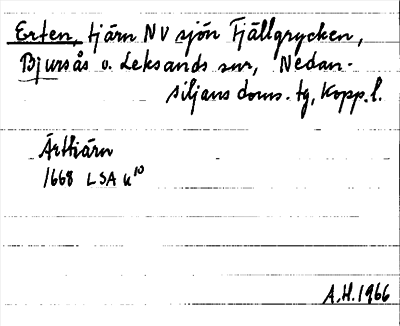 Erten, tjärn NV sjön Fjällgrycken,
Bjursås o. Leksands snr, Nedan-
siljans doms. tg, Kopp. l.
Ärttiärn
1668 LSA u10
A.H. 1966